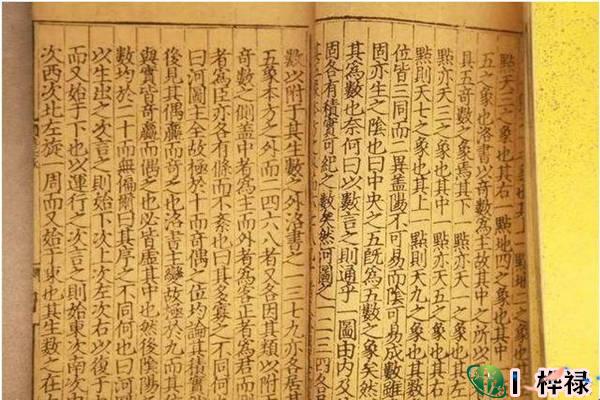 一點地二之象也
點天三之象也其右一點地四之象也其中
五之象也洛書以奇數為主故其中之所以
具五奇數之象焉其下
點亦天三之象也其中一點則亦天五之
點則天七之象也其上一點則天九之象
位皆三同而二異蓋陽不可易而陰可易成數雖
固亦生之陰也曰中央之五既為五數之象矣然
其為數也奈何曰以數言之則通乎一圖由內及
固各有積實可紀之數矣然河圖之一二三四各
數以附于其生數之外洛書之一三七九亦各居
五象本方之外而二四六八者又各因其類以附于
奇數之側蓋中者為主而外者為客正者為君而
者為臣亦各有條而不紊也曰其多寡之不同何
曰河圖主全故極於十而奇偶之位均論其積實
後見其偶贏而奇乏也洛書主變故極於九而其位
與實皆奇贏而偶乏也必皆虛其中也然後陰陽
數均於二十而無偏爾曰其序之不同何也曰河
以生出之次言之則始下次上次左次右以復于
而又始于下也以運行之次言之則始東次南次中
次西次北左旋一周而又始于東也其生數之在
梓禄